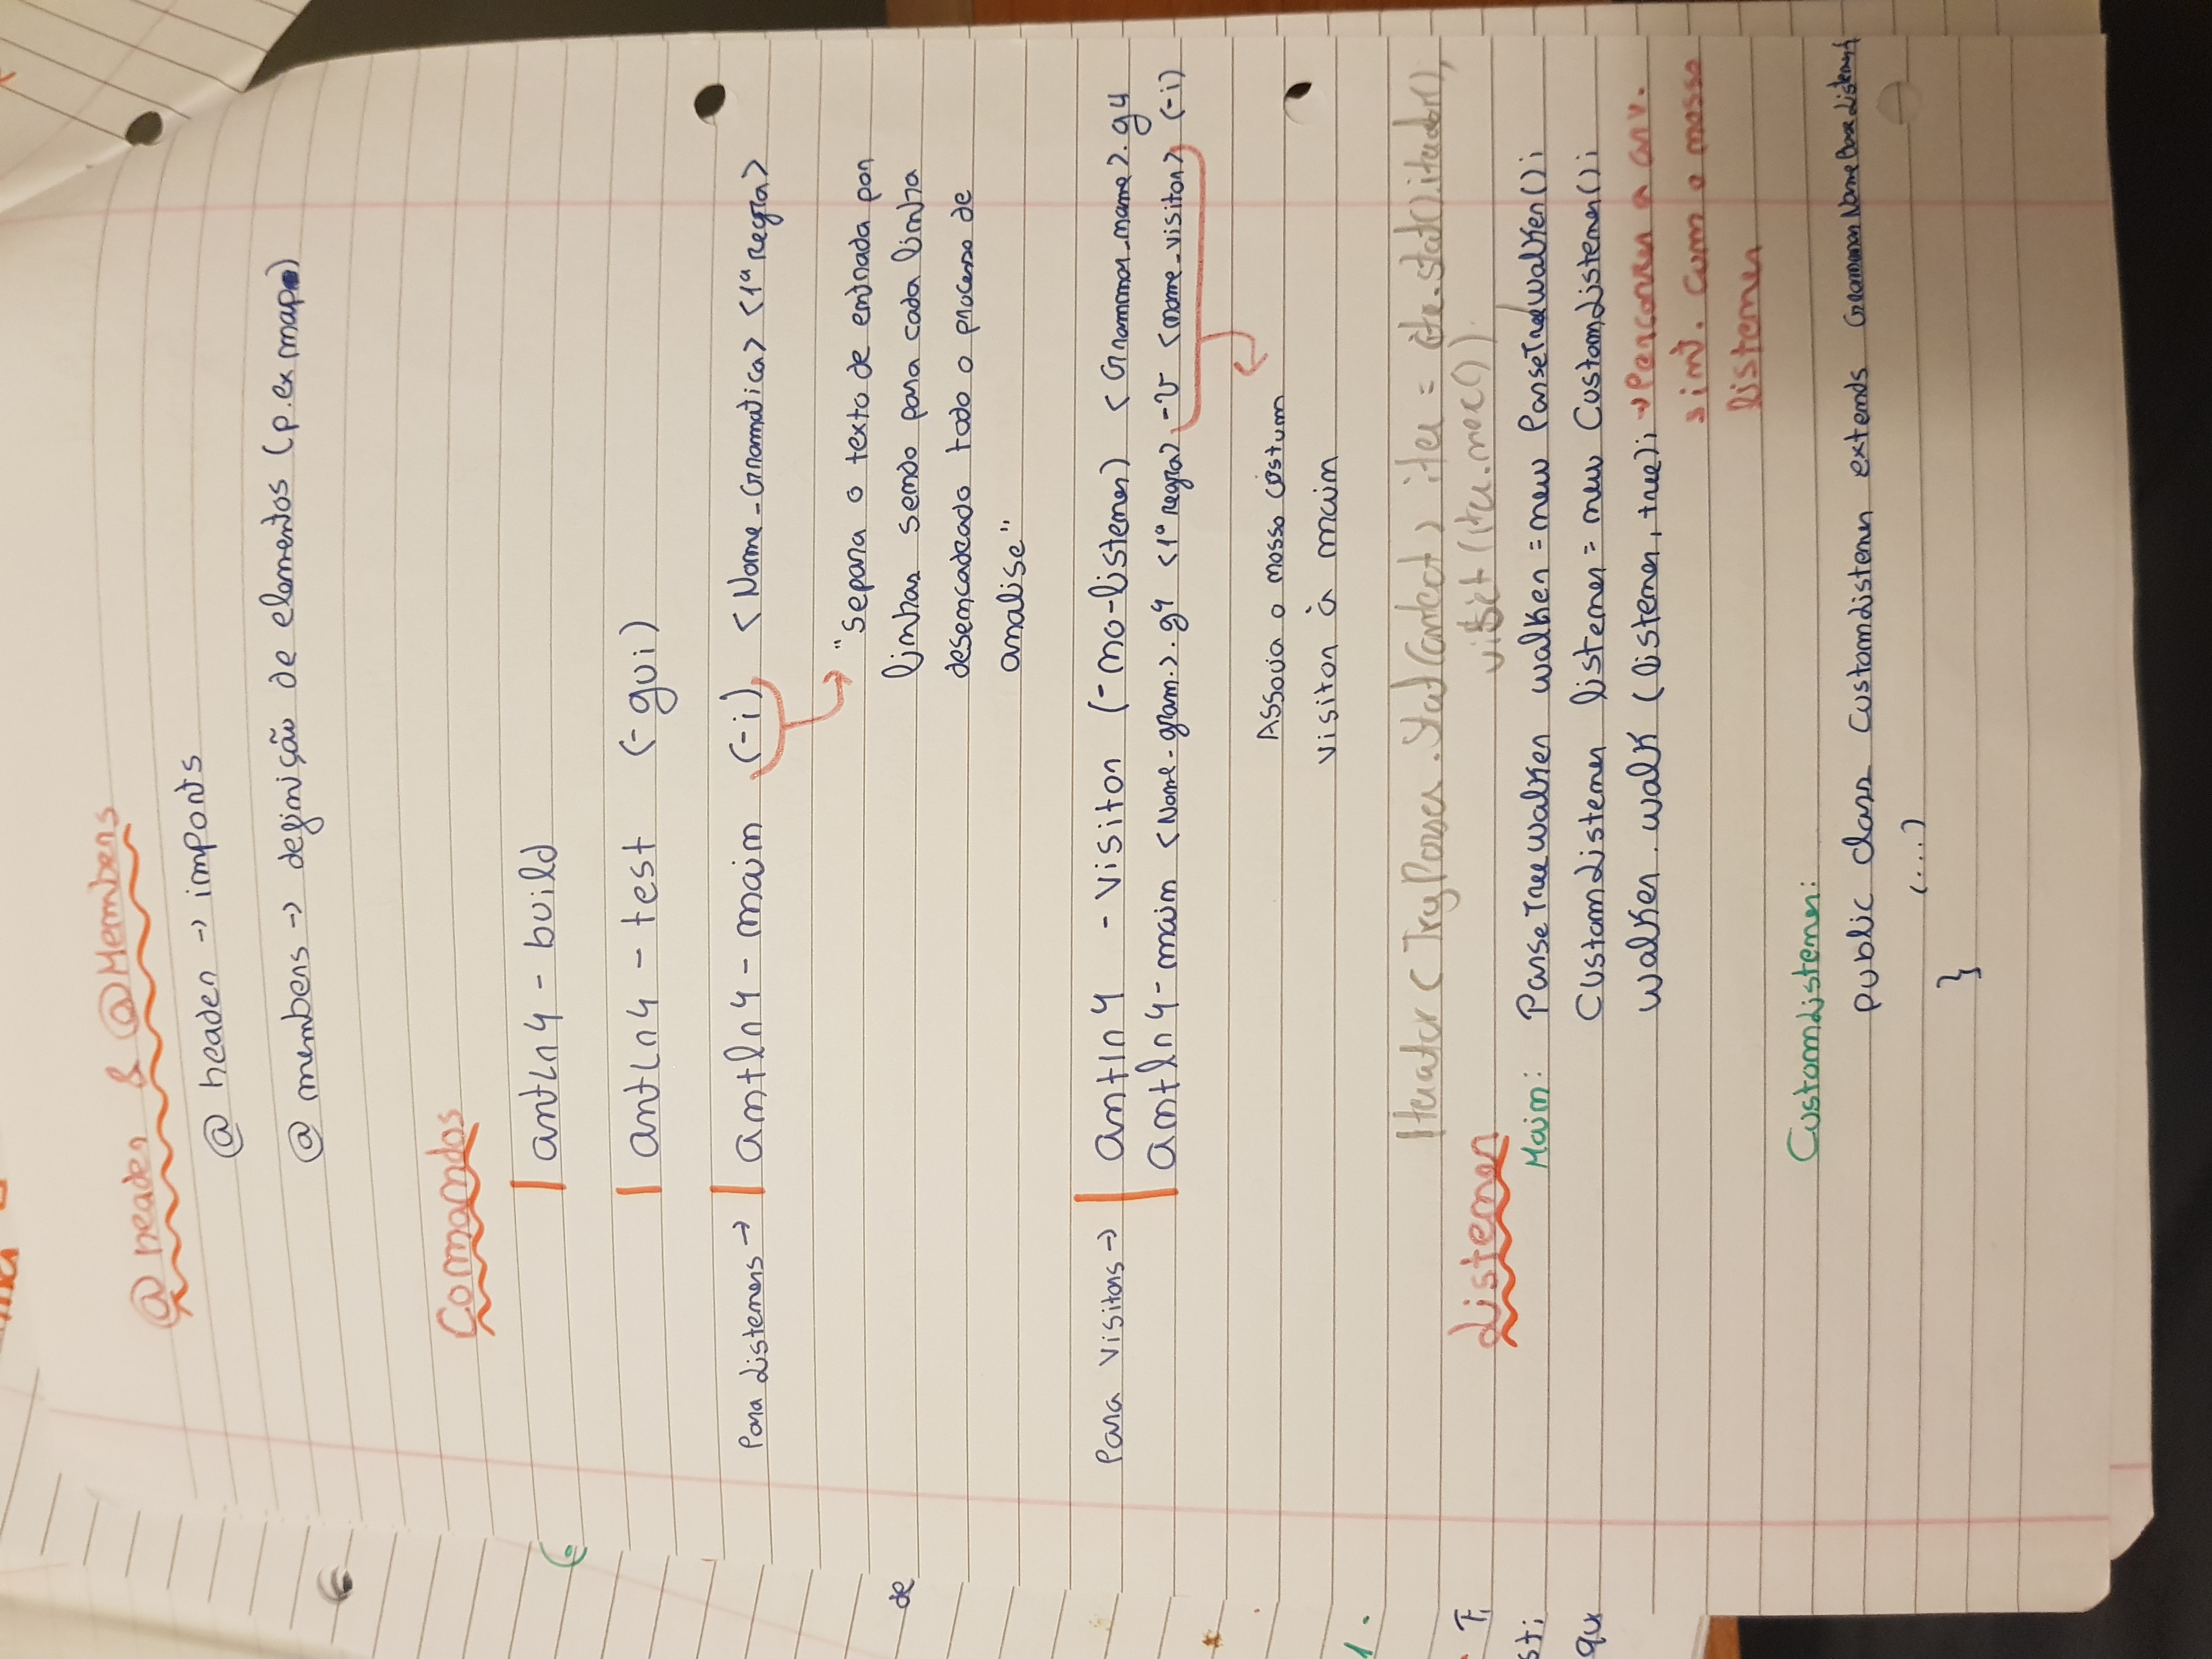 @ header & @Members
@ header → imports
@ members → definição de elementos (p.ex map)
Comandos
antlr4 - build
antlr4 - test (-gui)
Para Listeners → antlr4 - main (-i) <Nome-Gramatica> <1ª Regra>
"Separa o texto de entrada por
linhas sendo para cada linha
desencadeado todo o processo de
analise"
de
Para Visitors → antlr4 - visitor (-no-listener) <Grammar_name>.g4
antlr4-main <Nome-gram.>.g4 <1ª regra> -v <nome-visitor> (-i)
Associa o nosso costum
visitor à main
1.
Iterator < TryParser.StatContext > iter = .stat().iterator();
visit (iter.next())
Listener
Main: ParseTreeWalker walker = new ParseTreeWalker();
CustomListener listener = new CustomListener();
walker.walk (listener, tree); → Percorrer a arv.
sint. com o nosso
listener
sti
qu
CustomListener:
public class CustomListener extends GrammarNameBaseListener{
(...)
}